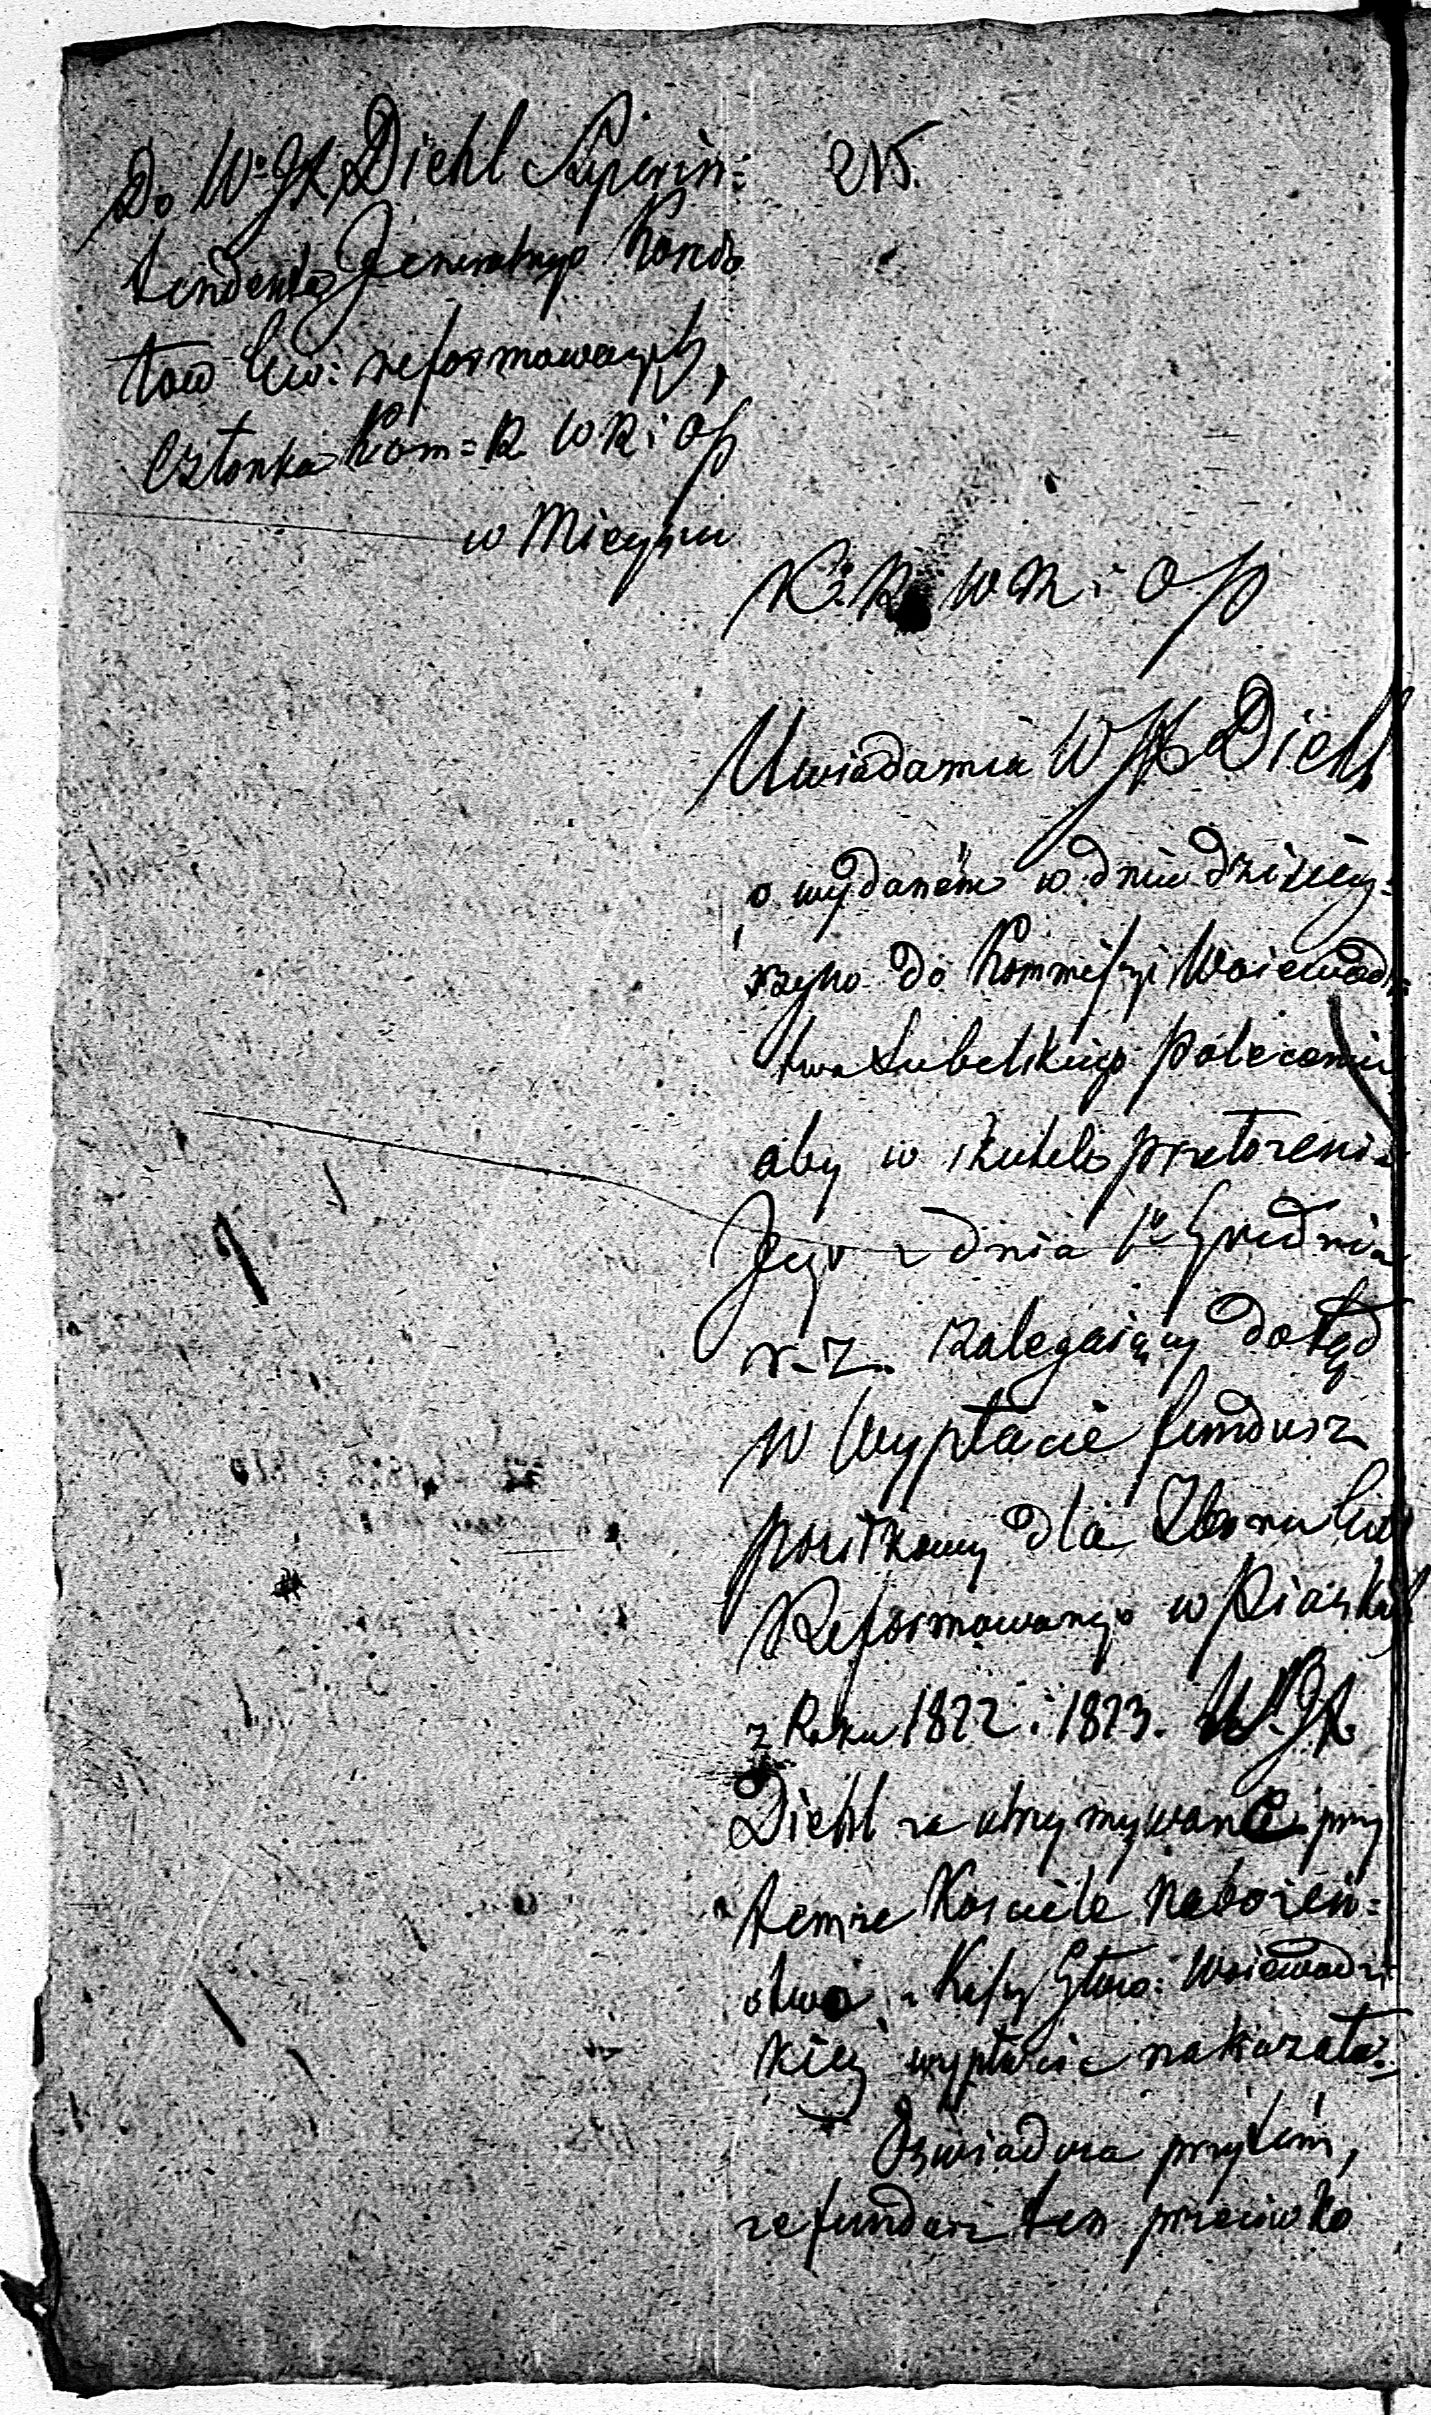 Do W° JX Diehl Superin:
tendenta Jeneralnego Konsis
tow Ew: reformowanych,
Członka Kom: R W R i OP
w Mieyscu
215.
K. R. W R i O P
Uwiadamia W JX Diehl
o wydaném w dniu dzisiey:
szym do Kommissyi Woiewódz:
twa Lubelskiego poleceniu
aby w skutek przełożenia
Jego z dnia 1° Grudnia
r. z. zalegaiący dotąd
w wypłacie fundusz
posiłkowy dla Zboru Ew
Reformowanego w Piaskach
z Roku 1822 i 1823. W. JX.
Diehl za utrzymywane przy
temże Kościele nabożeń:
stwo z Kassy Głów: Woiewódz
kiey wypłacić nakazała.
Oświadcza przytém,
że fundusz ten przeciwko